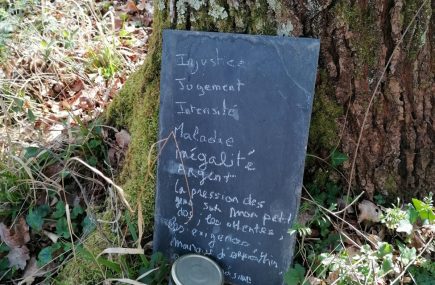 Injustice
Jugement
Intensité
Maladie
Inégalité
ARGENT
La pression des
gens sur mon petit
dos, les attentes,
les exigences
manque d'empathie